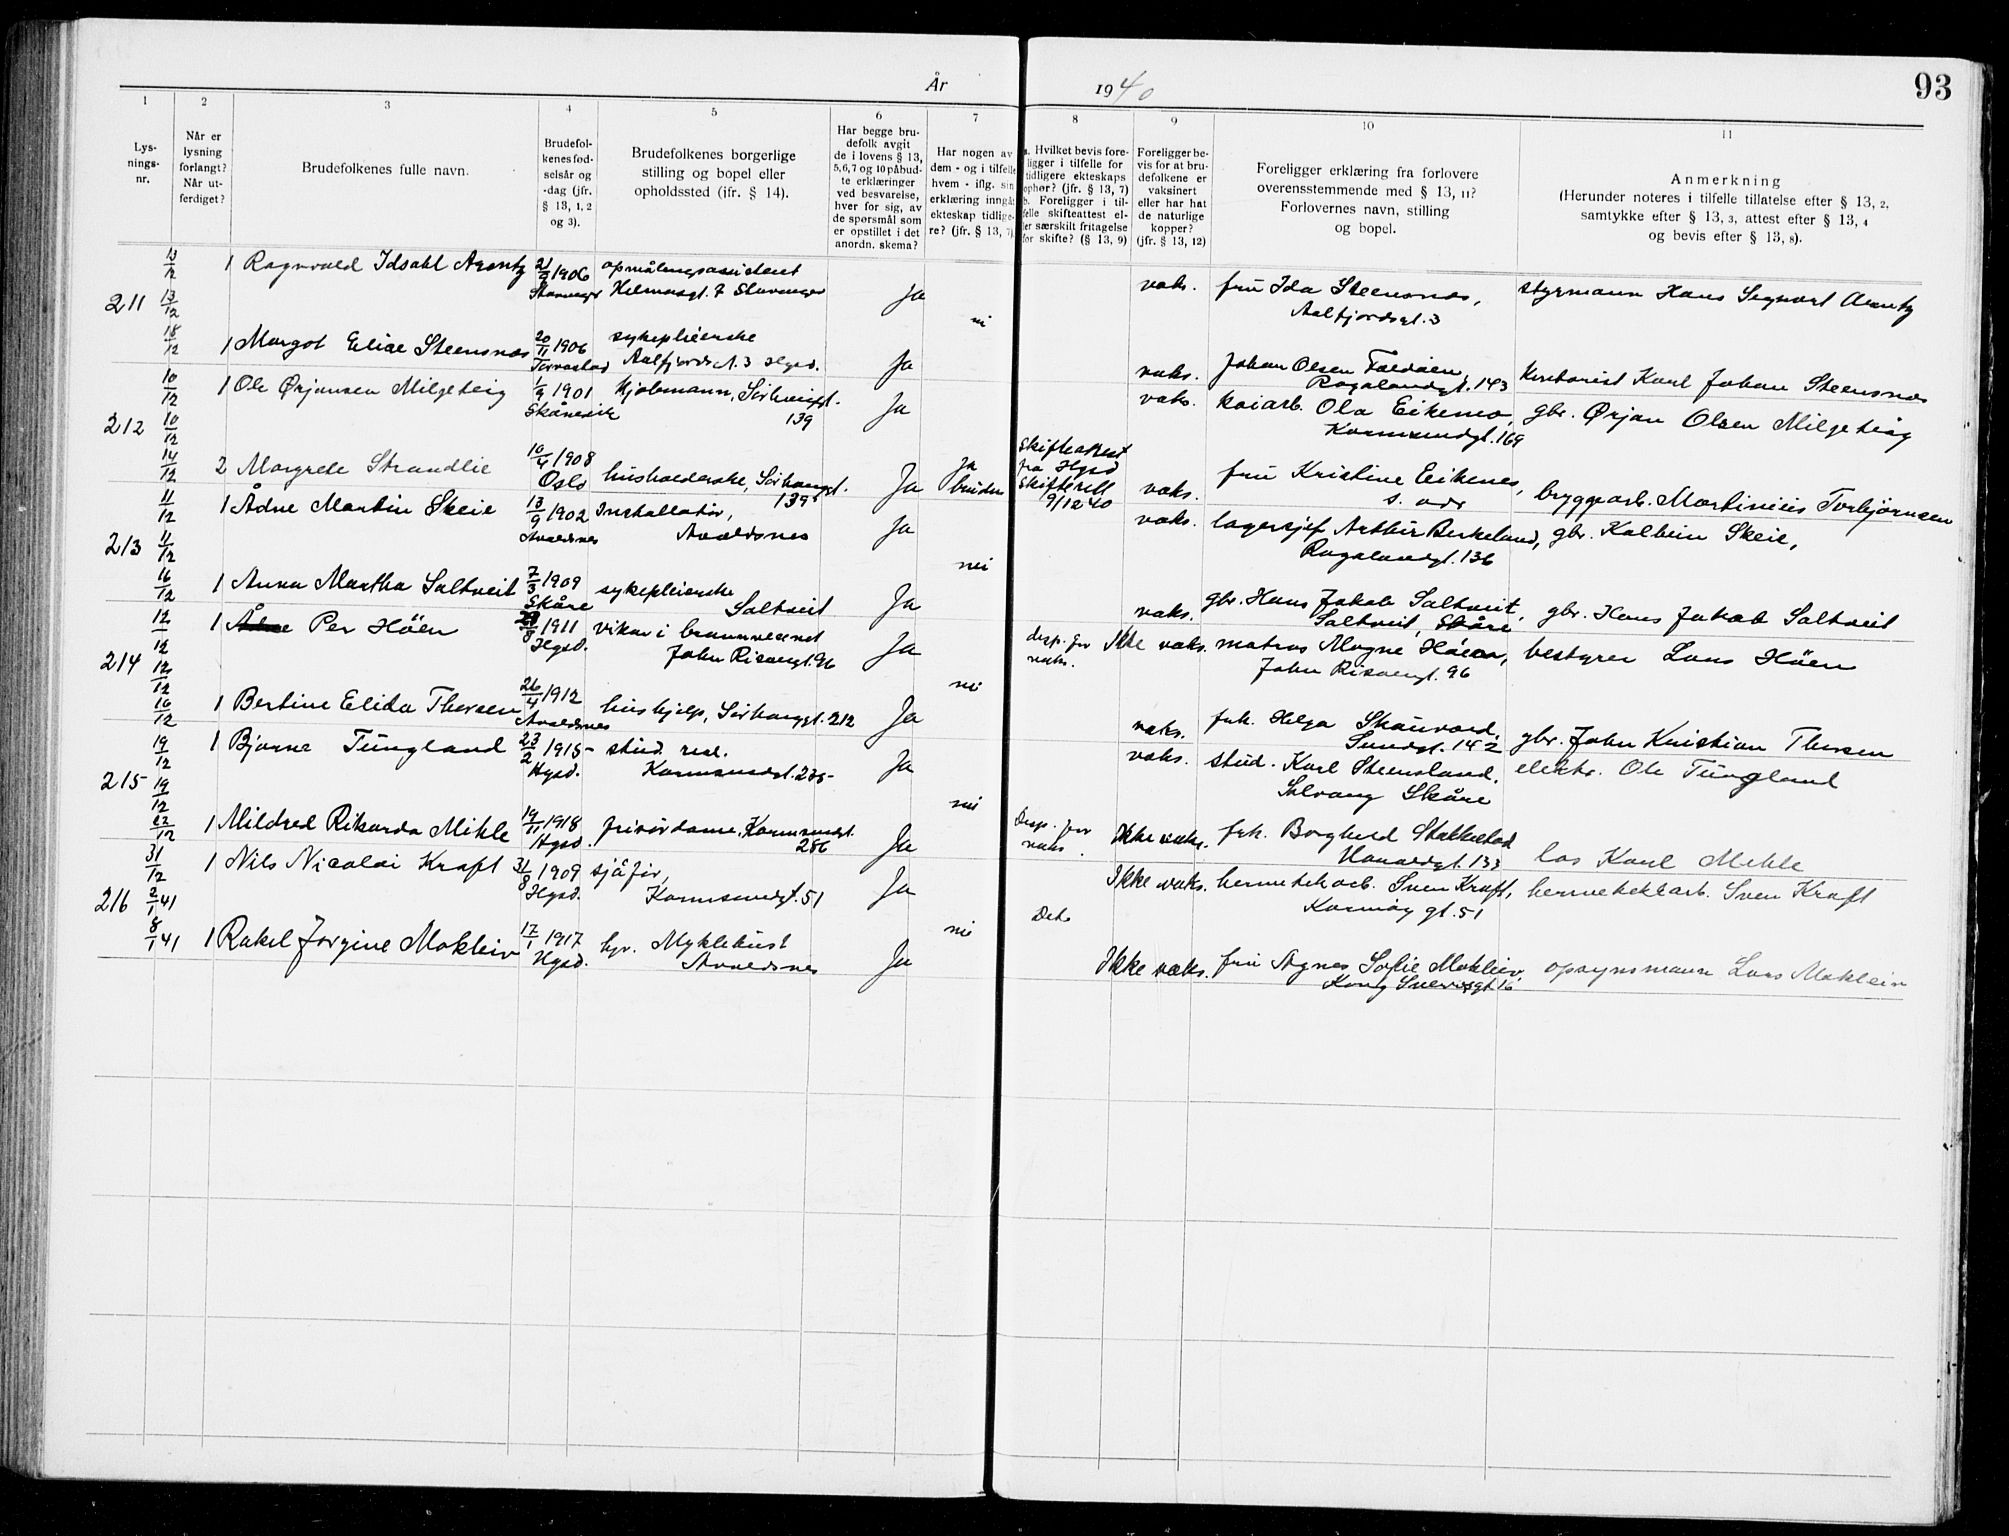 År 1940
93
1 2 3 4 5 6 7 8 9 10 11
Lysningsnr.
Når er lysning forlangt? Når utferdiget?
Brudefolkenes fulle navn.
Brudefolkenes fødselsår og -dag (jfr. § 13, 1, 2 og 3).
Brudefolkenes borgerlige stilling og bopel eller opholdssted (ifr. § 14).
Har begge brudefolk avgit de i lovens § 13, 5,6,7 og 10 påbudte erklæringer ved besvarelse, hver for sig, av de spørsmål som er opstillet i det anordn. skema?
Har nogen av dem - og i tilfelle hvem - iflg. sin erklæring inngåt ekteskap tidligere? (jfr. § 13, 7)
a. Hvilket bevis foreligger i tilfelle for tidligere ekteskaps ophør? (jfr. § 13, 7)
b. Foreligger i tilfelle skifteattest eller særskilt fritagelse for skifte? (§ 13, 9)
Foreligger bevis for at brudefolkene er vaksinert eller har hat de naturlige kopper? (jfr. § 13, 12)
Foreligger erklæring fra forlovere overensstemmende med § 13, 11? Forlovernes navn, stilling og bopel.
Anmerkning
(Herunder noteres i tilfelle tillatelse efter § 13, 2, samtykke efter § 13, 3, attest efter § 13, 4 og bevis efter § 13, 8).
211 13/12 13/12 1 Ragnvald Idsahl Arentz 21/9 1906 Stavanger opmålingsassistent Helmasgt. 7 Stavanger Ja vaks. fru Ida Steensnæs, Aalfjordsgt. 3 styrmann Hans Segvart Arentz
nei
18/12 1 Margot Elise Steensnæs 20/11 1906 Torvastad sykepleierske Aalfjords A. 3 Hgsd. Ja vaks. Johan Olsen Foldøen, Rogalandgt. 143 Karl Johan Steensnæs
212 10/12 10/12 1 Ole Ørjansen Milgeteig 1/9 1901 Skånevik Hjelmann, Sørhauggt. 139 Ja vaks. kaiarb. Ola Eikemo, Karmsundgt. 169 gbr. Ørjan Olsen Milgeteig
14/12 2 Margrete Strandlie 10/4 1908 Oslo husholderske, Sørhauggt. 139 Ja ja bruden Skifteattest fra Hgsd Skifterett 9/12 40 vaks. fru Kristine Eikenes, s. adr bryggearb. Martinius Torbjørnsen
213 11/12 11/12 1 Ådne Martin Skeie 13/9 1902 Avaldsnes Installatør, Avaldsnes Ja vaks. lagersjef Arthur Berkeland, Rogalandgt. 136 gbr. Kolbein Skeie,
nei
16/12 1 Anna Martha Saltveit 7/3 1909 Skåre sykepleierske Saltveit Ja vaks. gbr. Hans Jakob Saltveit, Saltveit, Skåre gbr. Hans Jakob Saltveit
214 12/12 12/12 1 Per Höen 1911 Hgsd. vikar i brannvesenet John Risøengt. 96 Ja disp. for vaks. Ikke vaks. matros Magne Höen, John Risøengt. 96 bestyrer Lars Höen
nei
16/12 1 Bertine Elida Thorsen 26/4 1912 Avaldsnes hushjelp, Sørhauggt. 212 Ja vaks. frk. Helga Skaurard, Sundgt. 142 gbr. John Kristian Thorsen
215 19/12 19/12 1 Bjarne Tungland 23/2 1915 Hgsd. stud. real. Karmsundgt. 235 Ja vaks. stud. Karl Steensland, Solvang Skåre elektr. Ole Tungland
nei
23/12 1 Mildred Rikarda Mihle 19/11 1918 Hgsd. frisördame, Karmsundgt. 286 Ja Disp. for vaks. Ikke vaks. frk. Borghild Stakkestad Haraldgt. 133 los Karl Mehle
216 31/12 2/1 41 1 Nils Nicolai Kraft 31/8 1909 Hgsd. sjåför, Karmsundgt. 51 Ja Ikke vaks. hermetikarb. Sven Kraft, Karmøy gt. 51 hermetikkarb. Sven Kraft
nei Do
8/1 41 1 Rakel Jørgine Mokleiv 17/1 1917 Hgsd. hpr. Myklebust Avaldsnes Ja Ikke vaks. fru Agnes Sofie Mokleiv, Kong Sverresgt. 16 opsynsmann Lars Mokleiv